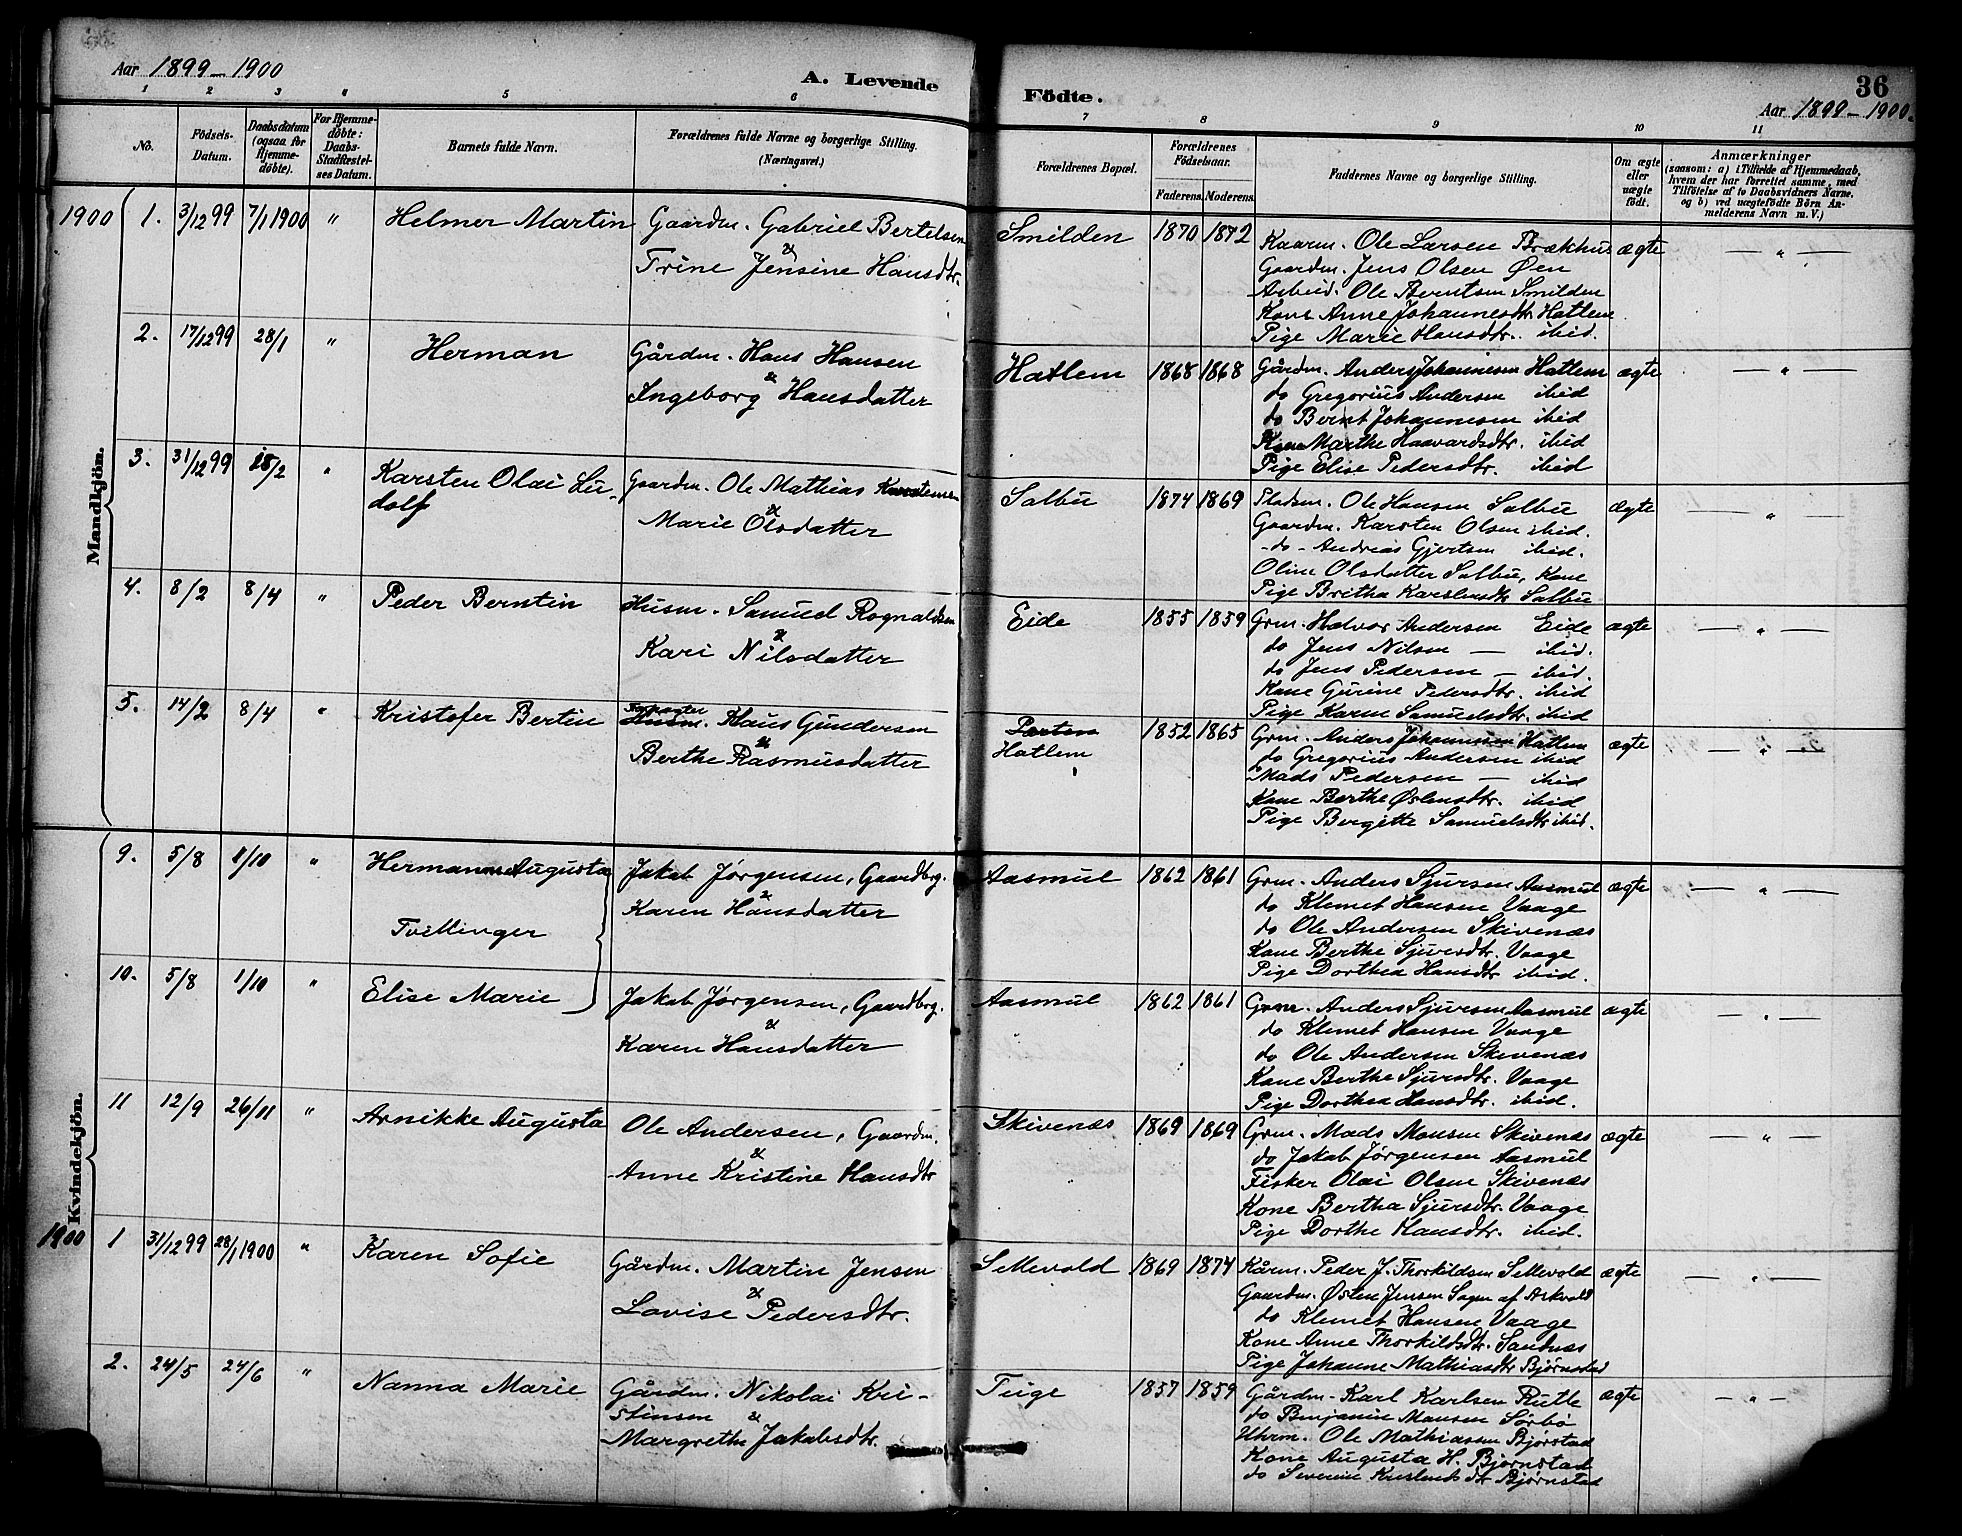 Aar 1899-1900
A. Levende
Födte.
36
Aar 1899-1900.
1 2 3 4 5 6 7 8 9 10 11
No.
Födsels-Datum.
Daabsdatum (ogsaa for Hjemme-döbte).
For Hjemme-döbte: Daabs-Stadfæstel-ses Datum.
Barnets fulde Navn.
Forældrenes fulde Navne og borgerlige Stilling.
(Næringsvei.)
Forældrenes Bopæl.
Forældrenes Födselsaar.
Faderens. Moderens.
Faddernes Navne og borgerlige Stilling.
Om ægte eller uægte födt.
Anmærkninger
(saasom: a) i Tilfælde af Hjemmedaab,
hvem der har forrettet samme, med
Tilföielse af to Daabsvidners Navne.
og b) ved uægtefödte Börn An-
melderens Navn m. V.)
Mandkjön.
1900 1. 3/12 99 7/1 1900 " Helmer Martin
Gaardm. Gabriel Bertelsen
&
Trine Jensine Hansdtr.
Smilden 1870 1872
Kaarm. Ole Larsen Brækhus
Gaardm. Jens Olsen Øen
Arbeid. Ole Berntsen Smilden
Kone Anne Johannesdtr Hatlem
Pige Marie Hansdtr. ibid.
ægte — " —
2. 17/12 99 28/1 " Herman
Gårdm. Hans Hansen
&
Ingeborg Hansdatter
Hatlem 1868 1868
Gårdm. Anders Johannesen Hatlem
do Gregorius Andersen ibid
do Bernt Johannesen ibid
Kone Marthe Haavardsdtr. ibid
Pige Elise Pedersdtr. ibid
ægte — " —
3. 31/12 99 18/2 " Karsten Olai Lu-
dolf
Gaardm. Ole Mathias Karstensen
&
Marie Olsdatter
Salbu 1874 1869
Pladsm. Ole Hansen Salbu
Gaardm. Karsten Olsen ibid.
-do- Andreas Gjertsen ibid.
Oline Olsdatter Salbu, Kone
Pige Britha Karstensdtr Salbu
ægte — " —
4. 8/2 8/4 " Peder Berntin
Husm. Samuel Rognaldsen
&
Kari Nilsdatter
Eide 1855 1859
Grm. Halvor Andersen Eide
do Jens Nilsen — ibid.
do Jens Pedersen — ibid.
Kone Gurine Pedersdtr. ibid
Pige Karen Samuelsdtr. ibid
ægte — " —
5. 14/2 8/4 " Kristofer Bertin
Husm. Klaus Gundersen
&
Berthe Rasmusdatter
Hatlem 1852 1865
Grm. Anders Johannesen Hatlem
do Gregorius Andersen ibid
Mads Pedersen — ibid
Kone Berthe Østensdtr. ibid
Pige Bergitte Samuelsdtr ibid.
ægte — " —
Kvindekjön.
9. 5/8 1/10 " Hermanne Augusta
Tvillinger
Jakob Jørgensen, Gaardbrg.
&
Karen Hansdatter
Aasmul 1862 1861
Grm. Anders Sjursen Aasmul
do Klemet Hansen Vaage
do Ole Andersen Skivenæs
Kone Berthe Sjursdtr. Vaage
Pige Dorthea Hansdtr ibid.
ægte — " —
10. 5/8 1/10 " Elise Marie
Jakob Jørgensen, Gaardbrg.
&
Karen Hansdatter
Aasmul 1862 1861
Grm. Anders Sjursen Aasmul
do Klemet Hansen Vaage
do Ole Andersen Skivenæs
Kone Berthe Sjursdtr. Vaage
Pige Dorthea Hansdtr. ibid.
ægte — " —
11 12/9 26/11 " Arnikke Augusta
Ole Andersen, Gaardm.
&
Anne Kristine Hansdtr
Skivenæs 1869 1869
Grm. Mads Monsen Skivenæs
do Jakob Jørgensen Aasmul
Fisker Olai Olsen Skivenæs
Kone Bertha Sjursdtr. Vaage
Pige Dorthe Hansdtr. ibid.
ægte — " —
1900 1 31/12 99 28/1 1900 " Karen Sofie
Gårdm. Martin Jensen
&
Lovise Pedersdtr.
Sellevold 1869 1874
Kårm. Peder J. Thorkildsen Sellevold
Gaardm. Østen Jensen Sogn af Askvold
do Klemet Hansen Vaage
Kone Anne Thorkildsdtr. Sandnæs
Pige Johanne Mathiasdtr Bjørnstad
ægte — " —
2. 24/5 24/6 " Nanna Marie
Gårdm. Nikolai Kri-
stensen &
Margrethe Jakobsdtr.
Teige 1857 1859
Gårdm. Karl Karlsen Rutle
do Benjamin Monsen Sørbø
Uhrm. Ole Mathiassen Bjørstad
Kone Augusta H. Bjørnstad
do Severine Kristensdtr Bjørnstad
ægte — " —